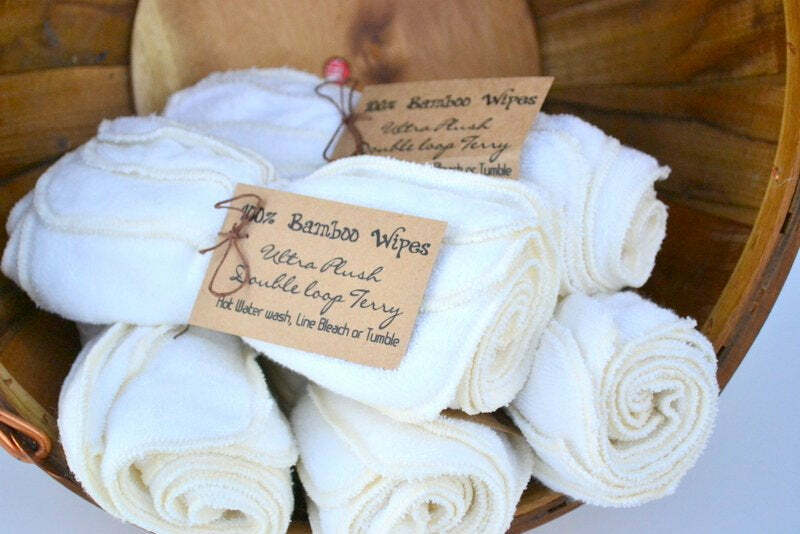 100% Bamboo Wipes
Ultra Plush
Double loop Terry
Bleach or Tumble
100% Bamboo Wipes
Ultra Plush
Double loop Terry
Hot Water wash, Line Bleach or Tumble